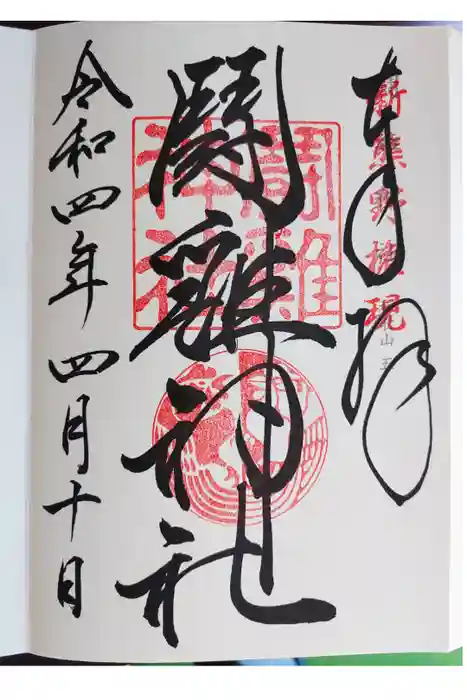 奉拝
新熊野権現
闘雞神社
闘雞
神社
令和四年四月十日